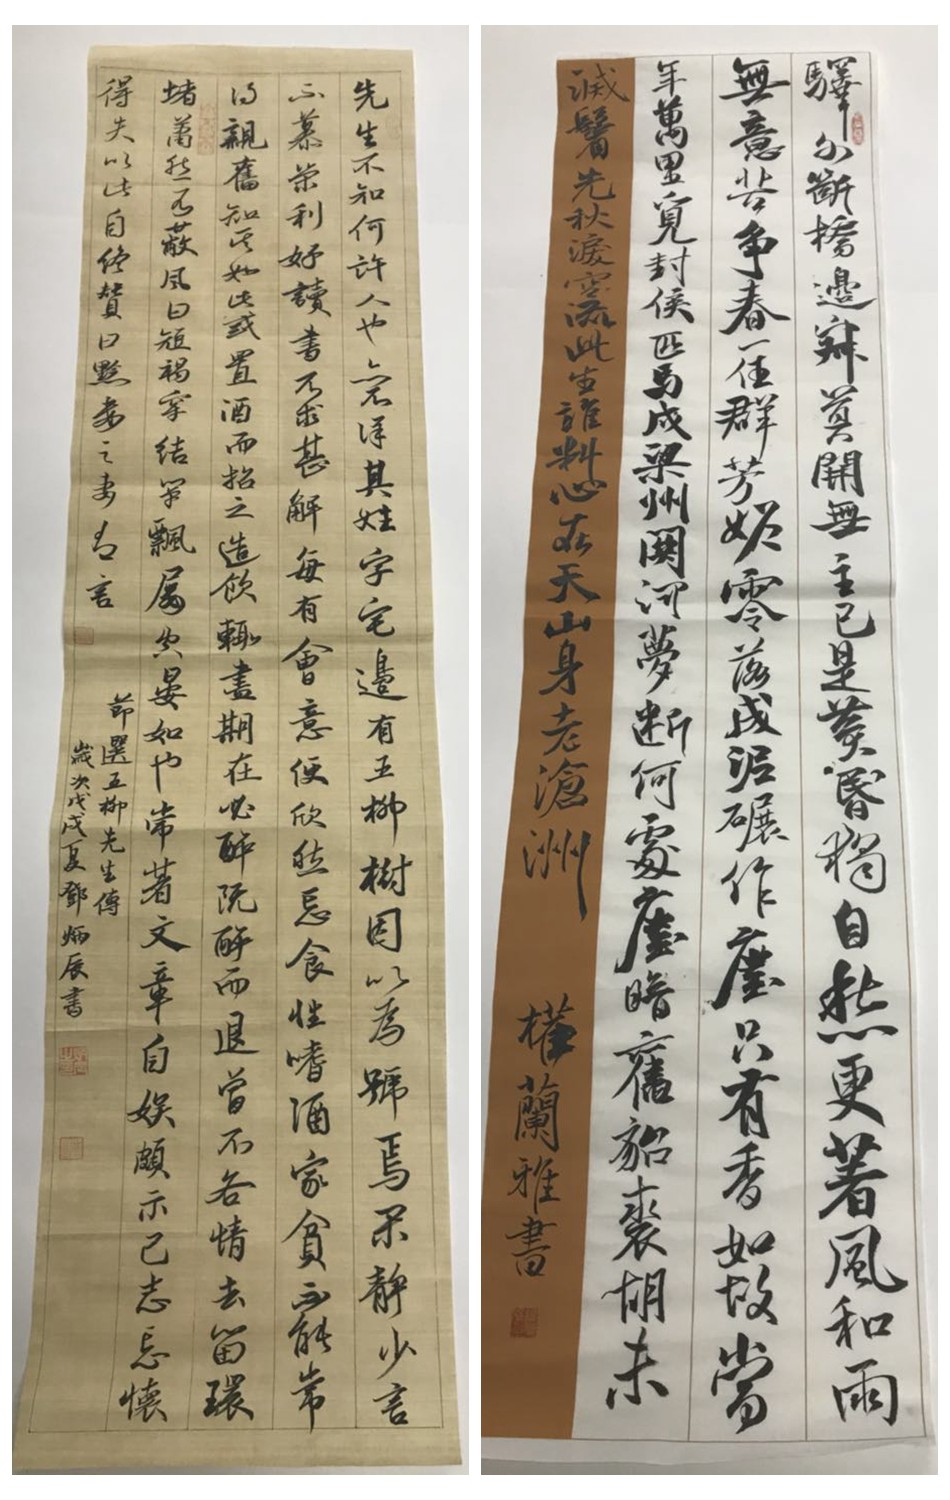 先生不知何許人也亦不詳其姓字宅邊有五柳樹因以為號焉閑静少言
不慕荣利好讀書不求甚解每有會意便欣然忘食性嗜酒家貧不能常
得親舊知其如此或置酒而招之造飲輒盡期在必醉既醉而退曾不吝情去留環
堵蕭然不蔽風日短褐穿結簞瓢屢空晏如也常著文章自娱頗示己志忘懷
得失以此自終贊曰黔婁之妻有言
節選五柳先生傳
歲次戊戌夏鄧炳辰書
驛外斷橋邊寂寞開無主已是黃昏獨自愁更著風和雨
無意苦争春一任群芳妒零落成泥碾作塵只有香如故當
年萬里覓封侯匹馬戍梁州關河夢断何處塵暗舊貂裘胡未
滅鬢先秋淚空流此生誰料心在天山身老滄洲
權蘭雅書